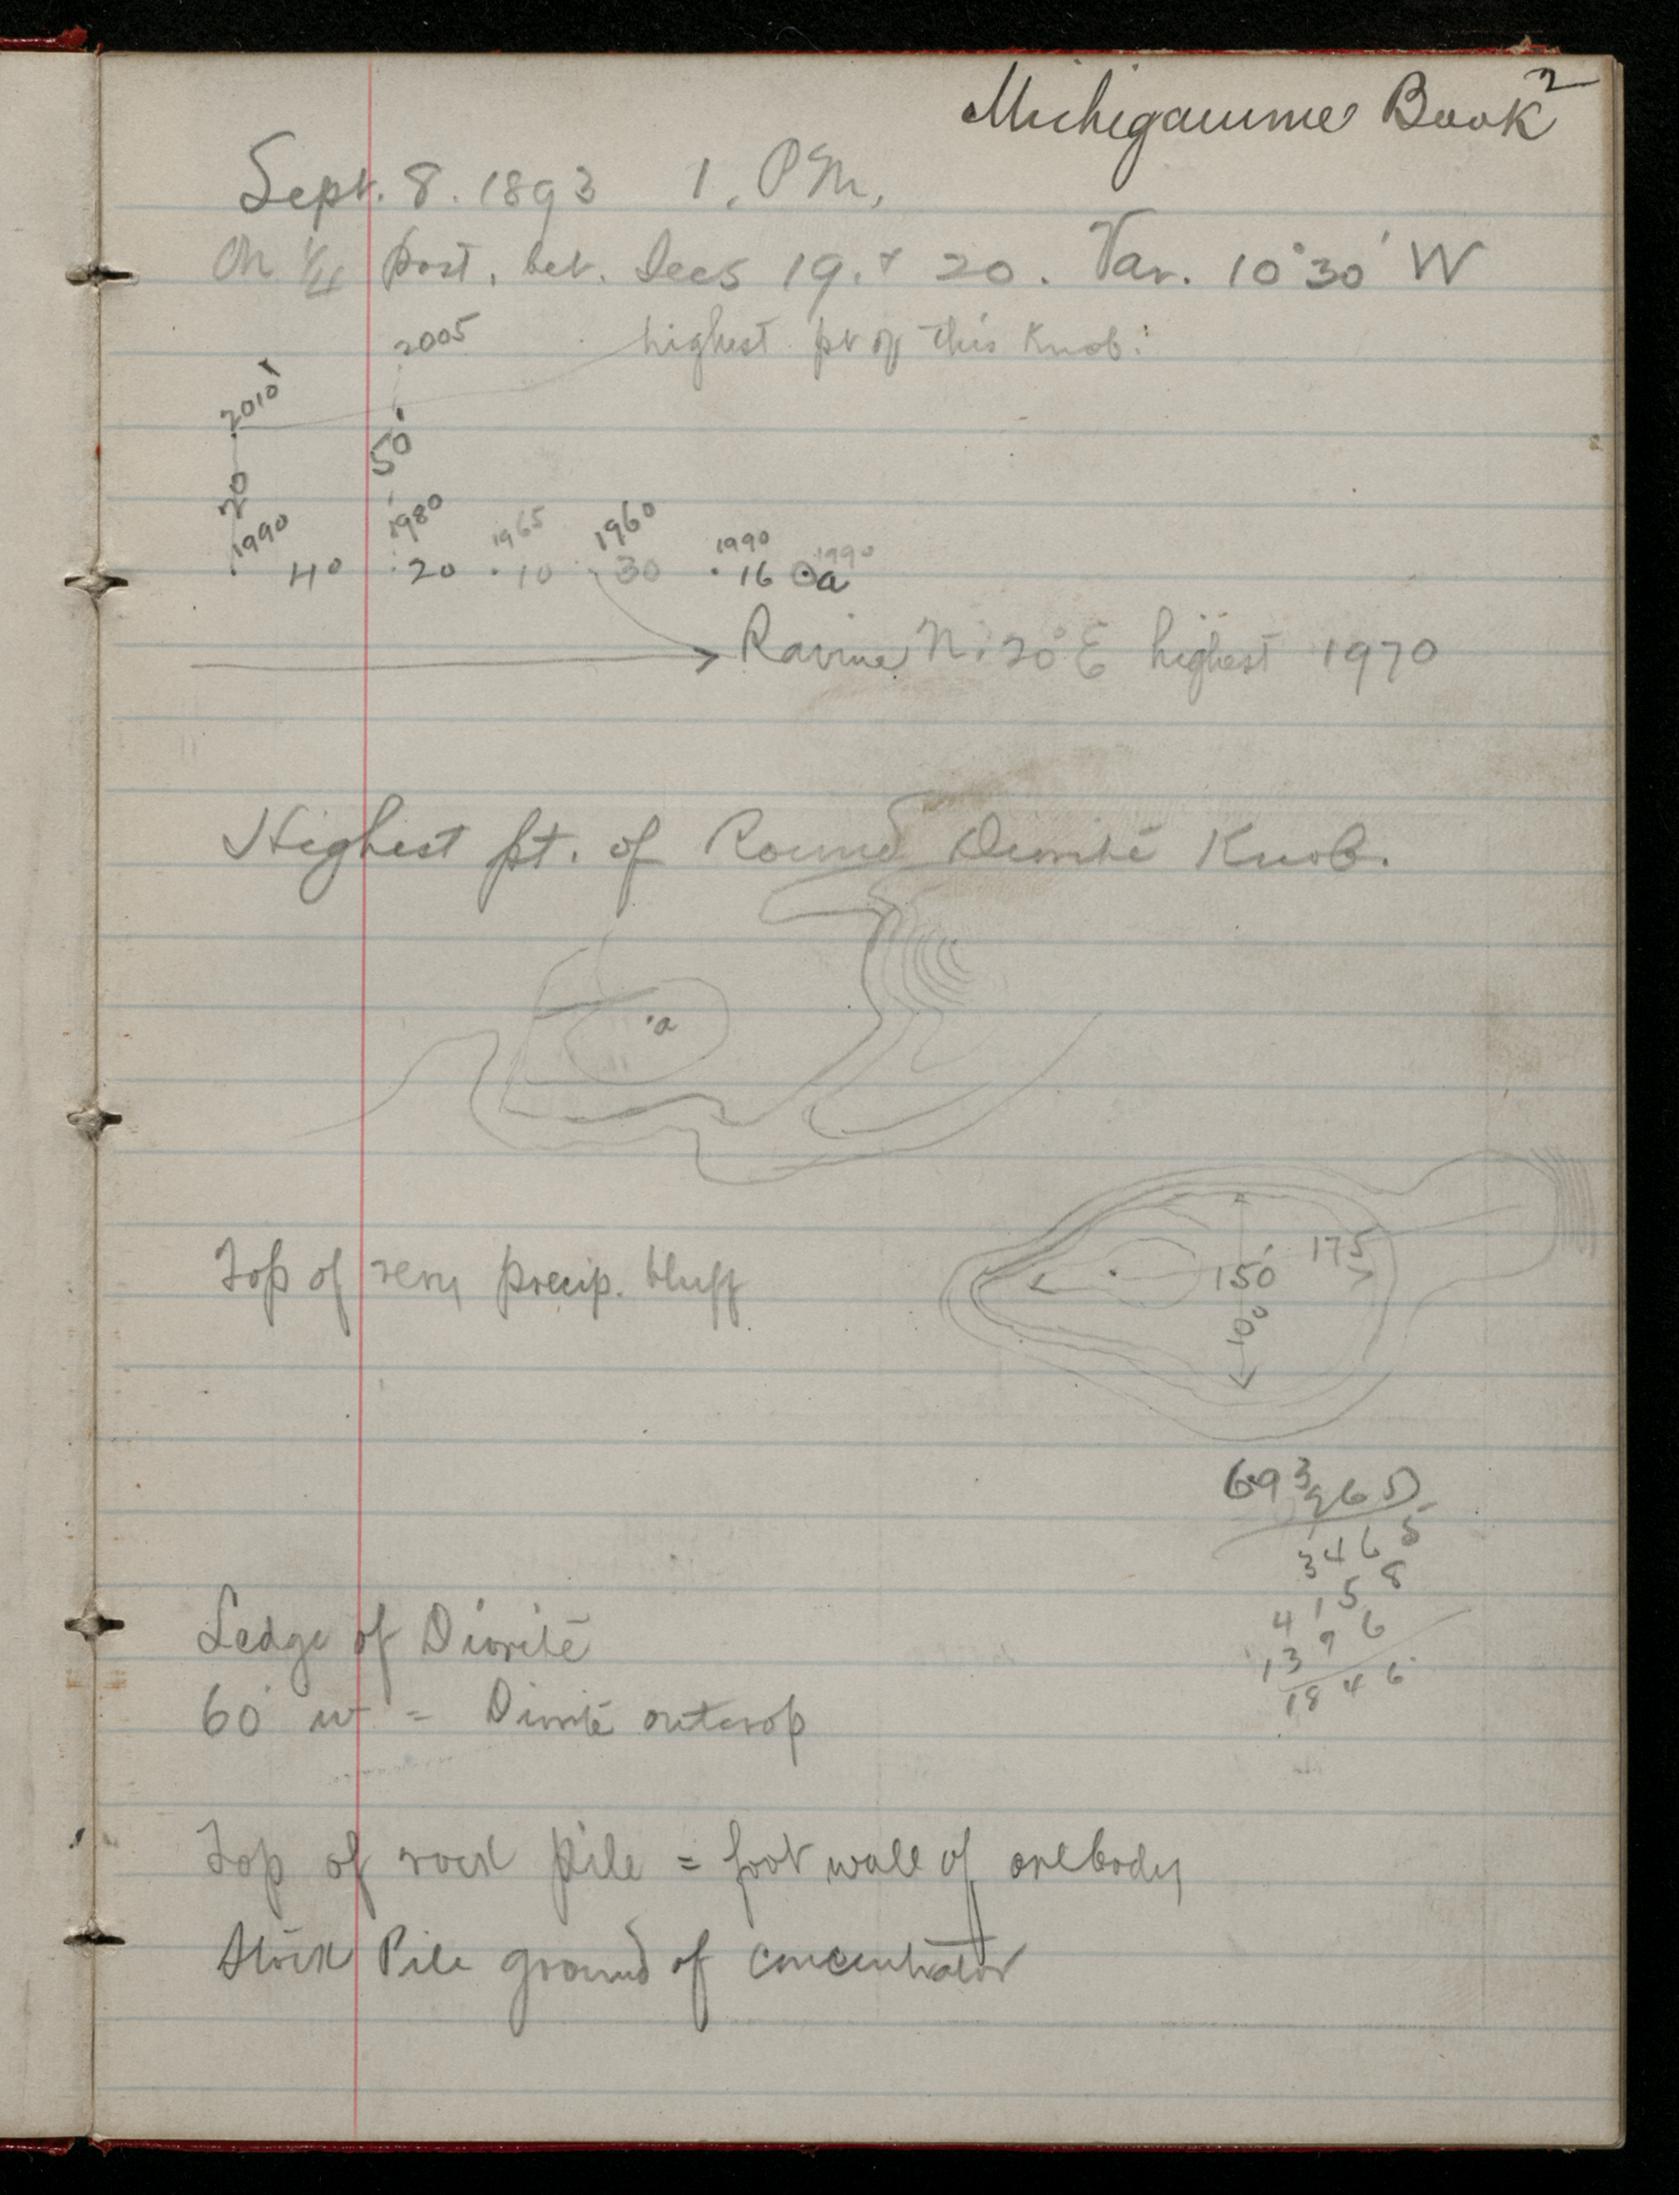 Michigamme Book 2
Sept. 8. 1893 1. P.M.
On 1/4 post. bet. Secs 19. & 20. Var. 10° 30' W
2005 highest pt of this Knob.
2010'
50'
20
1990 1980 1965 1960 1990 1990
40 20 10 30 16 a
Ravine N. 20° E highest 1970
Highest pt. of Round Diorite Knob.
a
Top of very precip. bluff
150' 175
100
693
3465
4158
1396
1846
Ledge of Diorite
60' W = Diorite outcrop
Top of rock Pile = foot wall of orebody
Stock Pile ground of concentrator